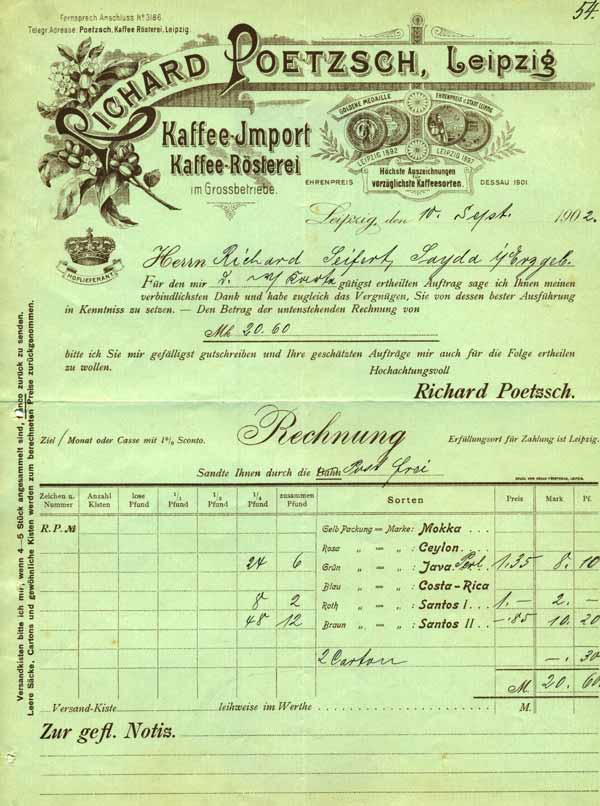 54.
Fernsprech Anschluss No 3186.
Telegr. Adresse: Poetzsch, Kaffee Rösterei, Leipzig.
RICHARD POETZSCH, Leipzig
Kaffee-Import
Kaffee-Rösterei
im Grossbetriebe.
GOLDENE MEDAILLE
EHRENPREIS D. STADT LEIPZIG
LEIPZIG 1892
LEIPZIG 1897
Höchste Auszeichnungen
für
vorzüglichste Kaffeesorten.
EHRENPREIS
DESSAU 1901.
HOFLIEFERANT
Leipzig, den 10. Sept. 1902.
Herrn Richard Seifert, Sayda i/Erzgeb.
Für den mir d. gütigst ertheilten Auftrag sage ich Ihnen meinen
verbindlichsten Dank und habe zugleich das Vergnügen, Sie von dessen bester Ausführung
in Kenntniss zu setzen. — Den Betrag der untenstehenden Rechnung von
Mk 20.60
bitte ich Sie mir gefälligst gutschreiben und Ihre geschätzten Aufträge mir auch für die Folge ertheilen
zu wollen.
Hochachtungsvoll
Richard Poetzsch.
Ziel / Monat oder Casse mit 1% Sconto.
Rechnung
Erfüllungsort für Zahlung ist Leipzig.
Sandte Ihnen durch die Bahn Post frei
Zeichen u. Nummer Anzahl Kisten lose Pfund 1/1 Pfund 1/2 Pfund 1/4 Pfund zusammen Pfund Sorten Preis Mark Pf.
R. P. № Gelb Packung = Marke: Mokka . . .
Rosa „ = „ : Ceylon . . .
24 6 Grün „ = „ : Java Perl. 1.35 8. 10
Blau „ = „ : Costa-Rica
8 2 Roth „ = „ : Santos I . . . 1.— 2. —
48 12 Braun „ = „ : Santos II . . —.85 10. 20
2 Carton —. 30
M. 20. 60.
Versand-Kiste leihweise im Werthe M.
Zur gefl. Notiz.
Versandkisten bitte ich mir, wenn 4—5 Stück angesammelt sind, franco zurück zu senden.
Leere Säcke, Cartons und gewöhnliche Kisten werden zum berechneten Preise zurückgenommen.